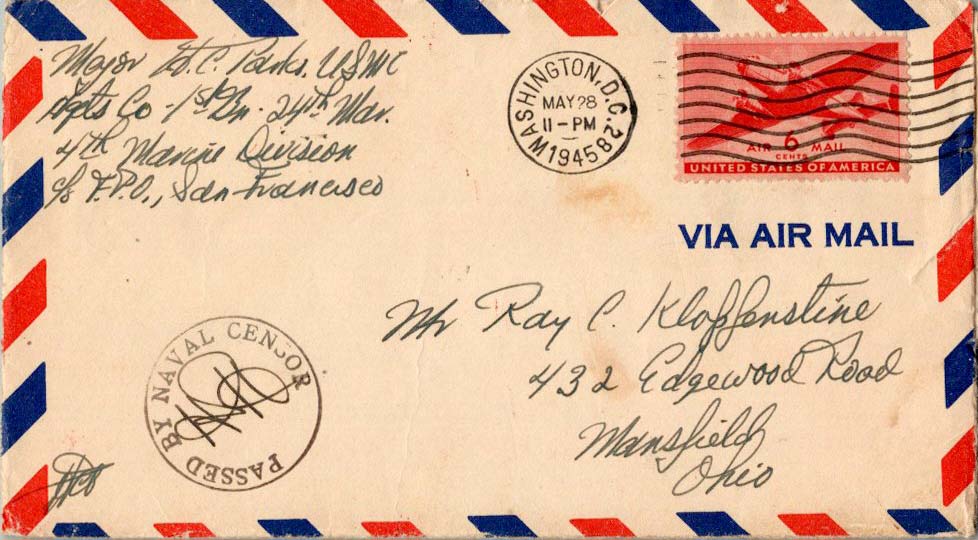 Major H.C. Parks, USMC
Hqts Co - 1st Bn - 24th Mar.
4th Marine Division
c/o F.P.O., San Francisco
WASHINGTON, D.C. 28
MAY 28
11 - PM
1945
AIR 6 MAIL
CENTS
UNITED STATES OF AMERICA
VIA AIR MAIL
Mr Ray C. Kloffenstine
432 Edgewood Road
Mansfield
Ohio
PASSED BY NAVAL CENSOR